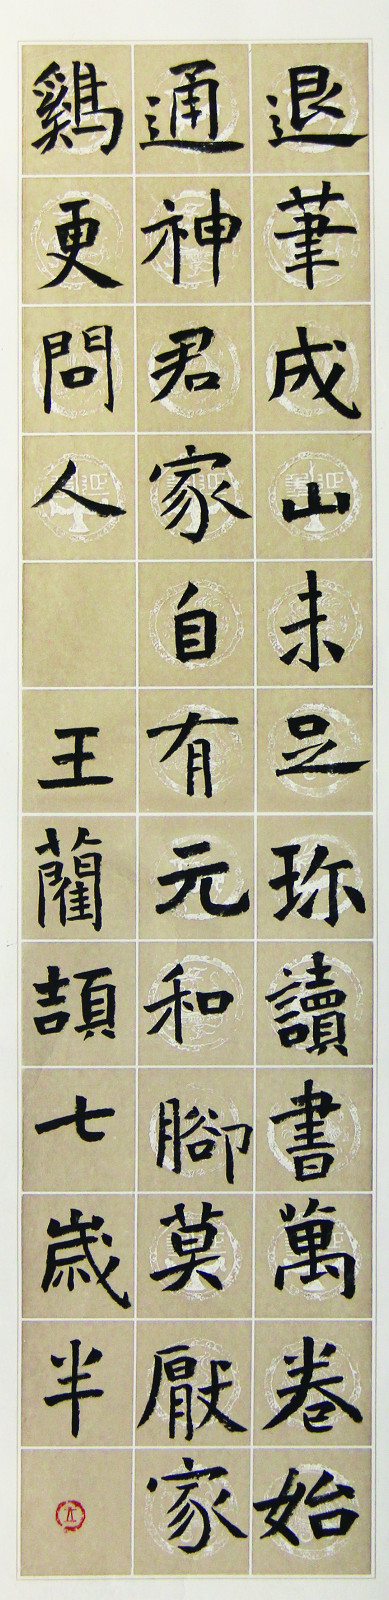 退筆成山未足珎讀書萬卷始
通神君家自有元和腳莫厭家
鷄更問人 王藺頡七歲半